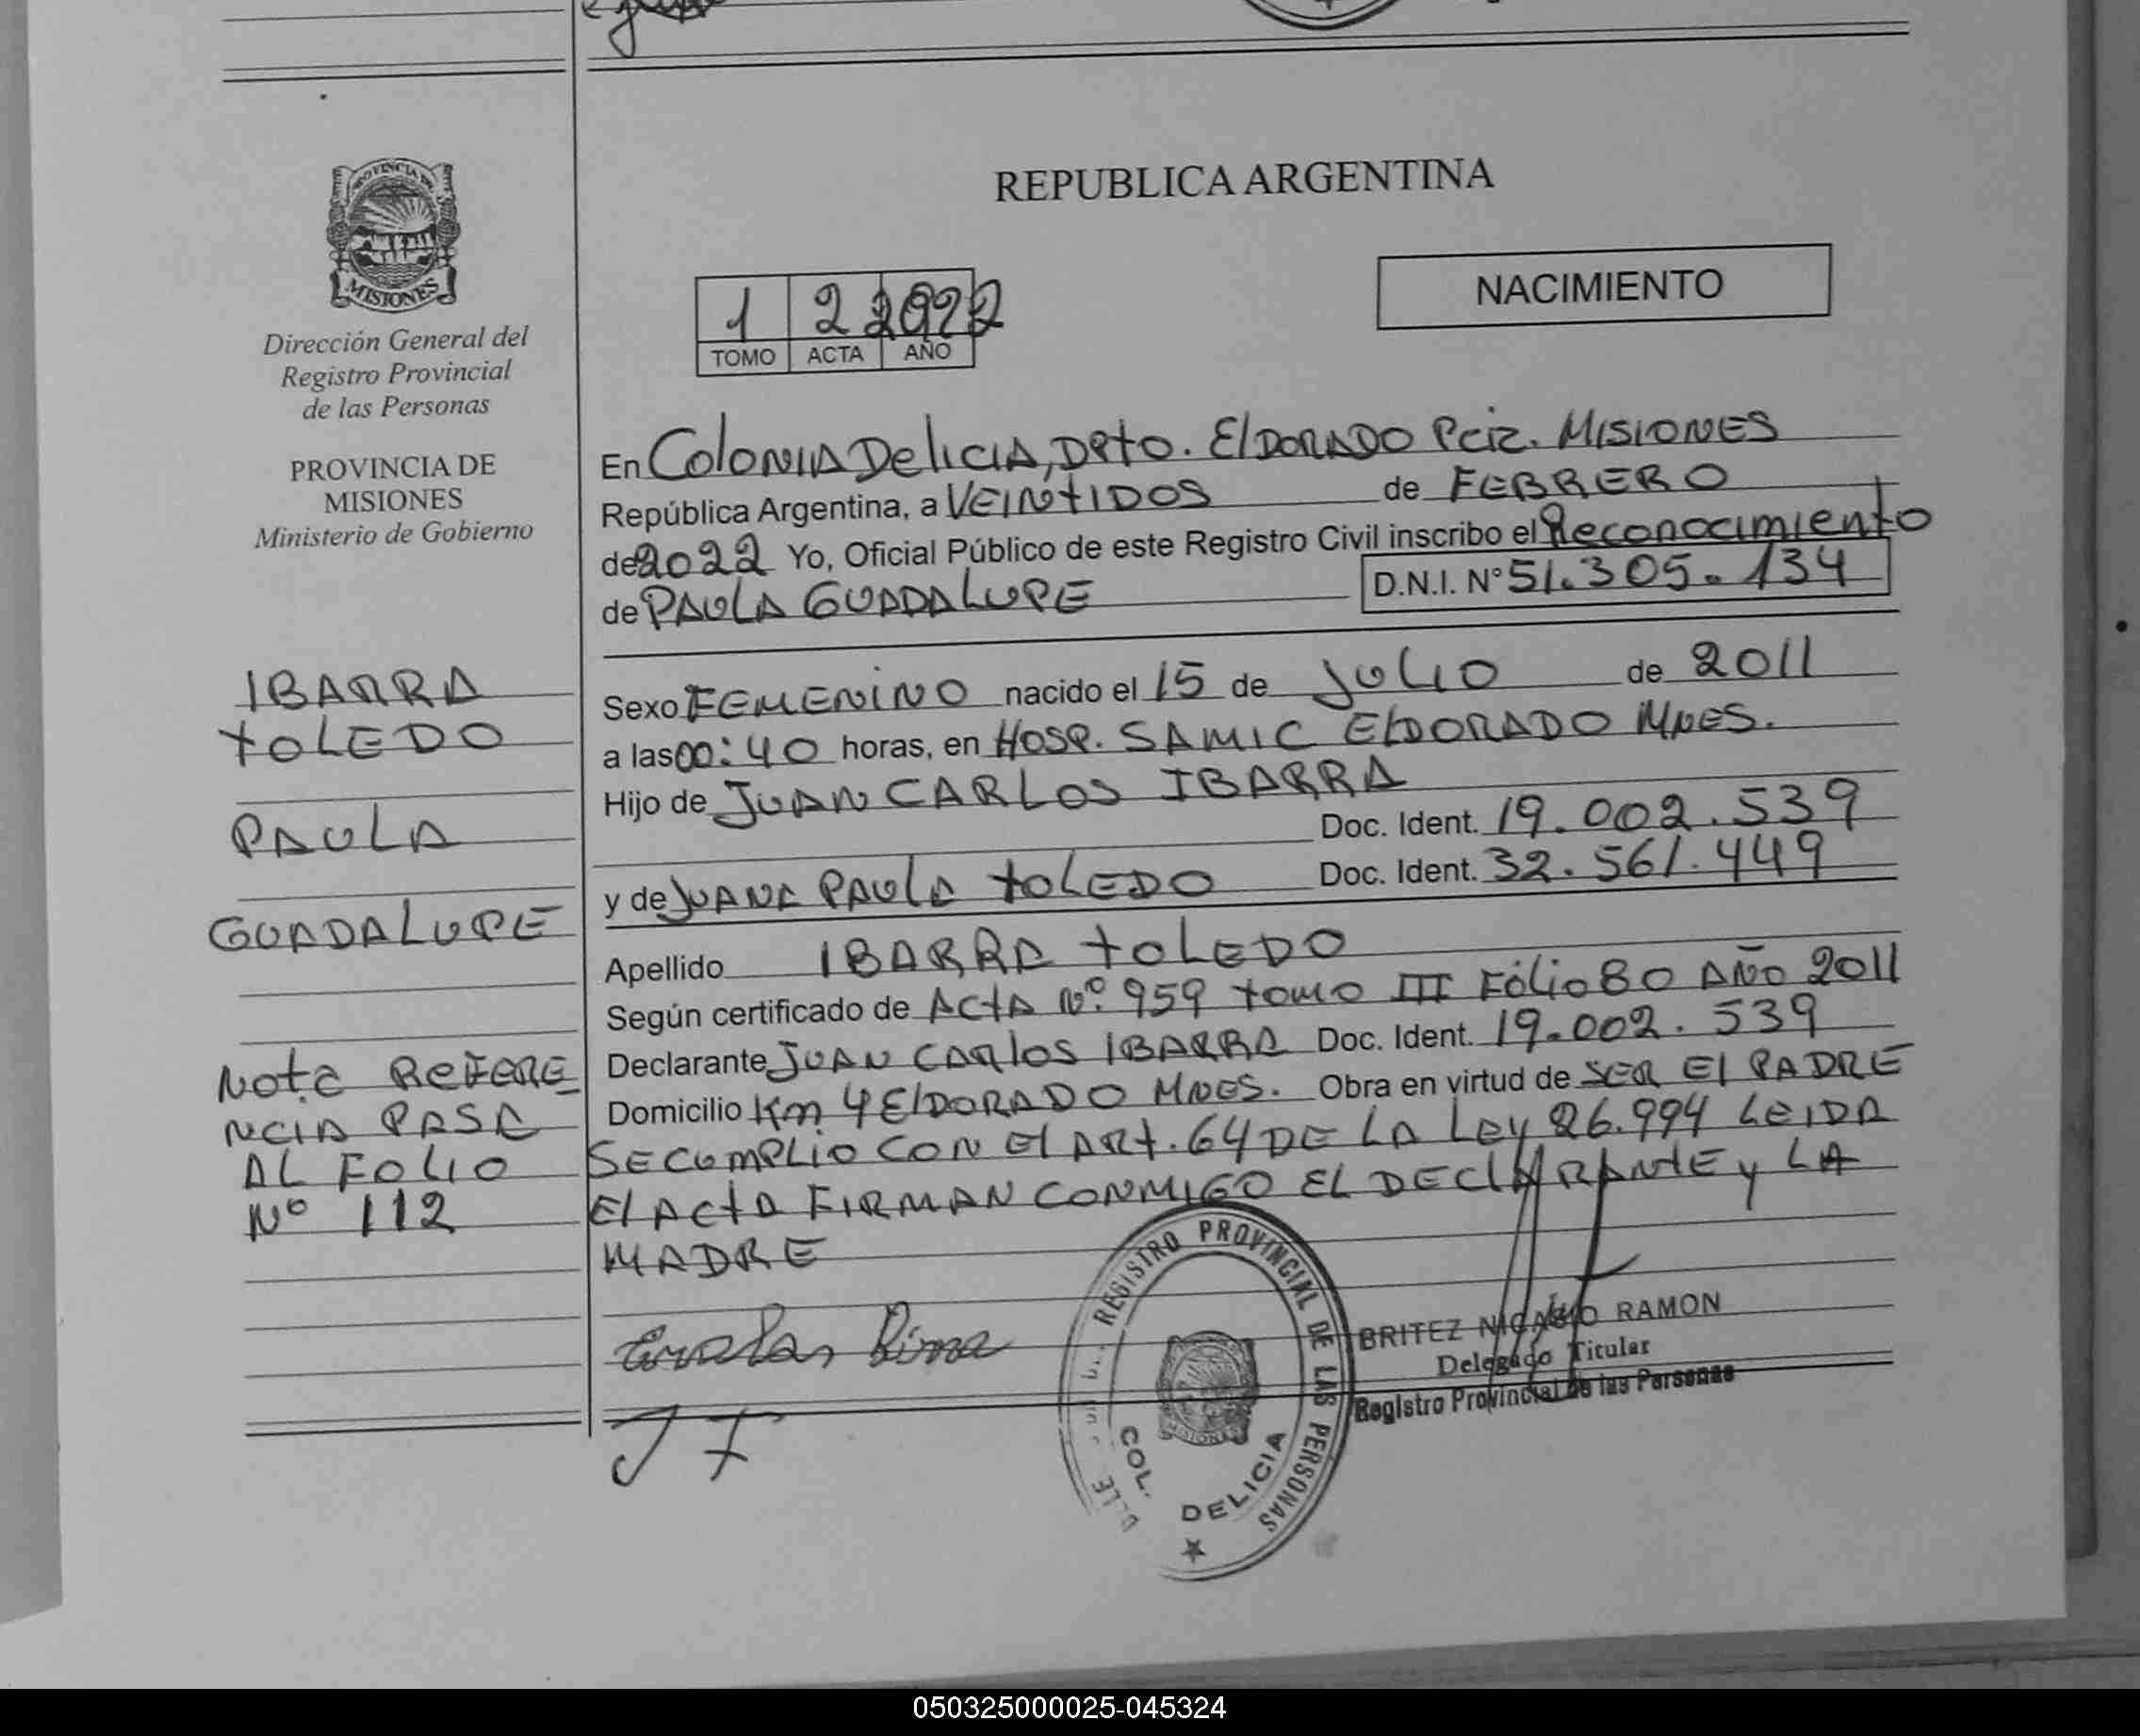 PROVINCIA DE
MISIONES
Dirección General del
Registro Provincial
de las Personas
PROVINCIA DE
MISIONES
Ministerio de Gobierno
IBARRA
TOLEDO
PAULA
GUADALUPE
Nota REFERE
NCIA PASA
AL FOLIO
Nº 112
REPUBLICA ARGENTINA
NACIMIENTO
1 2 2022
TOMO ACTA AÑO
En COLONIA DELICIA, DPTO. ELDORADO PCIA. MISIONES
República Argentina, a VEINTIDOS de FEBRERO
de 2022 Yo, Oficial Público de este Registro Civil inscribo el Reconocimiento
de PAULA GUADALUPE D.N.I. Nº 51.305.134
Sexo FEMENINO nacido el 15 de JULIO de 2011
a las 00:40 horas, en HOSP. SAMIC ELDORADO MNES.
Hijo de JUAN CARLOS IBARRA
Doc. Ident. 19.002.539
y de JUANA PAULA TOLEDO Doc. Ident. 32.561.449
Apellido IBARRA TOLEDO
Según certificado de ACTA Nº. 959 TOMO III FÓLIO 80 AÑO 2011
Declarante JUAN CARLOS IBARRA Doc. Ident. 19.002.539
Domicilio Km 4 ELDORADO MNES. Obra en virtud de SER EL PADRE
SE CUMPLIO CON EL ART. 64 DE LA LEY 26.994 LEIDA
EL ACTA FIRMAN CONMIGO EL DECLARANTE Y LA
MADRE
REGISTRO PROVINCIAL DE LAS PERSONAS
MISIONES
COL. DELICIA
BRITEZ NICASIO RAMON
Delegado Titular
Registro Provincial de las Personas
J T
050325000025-045324